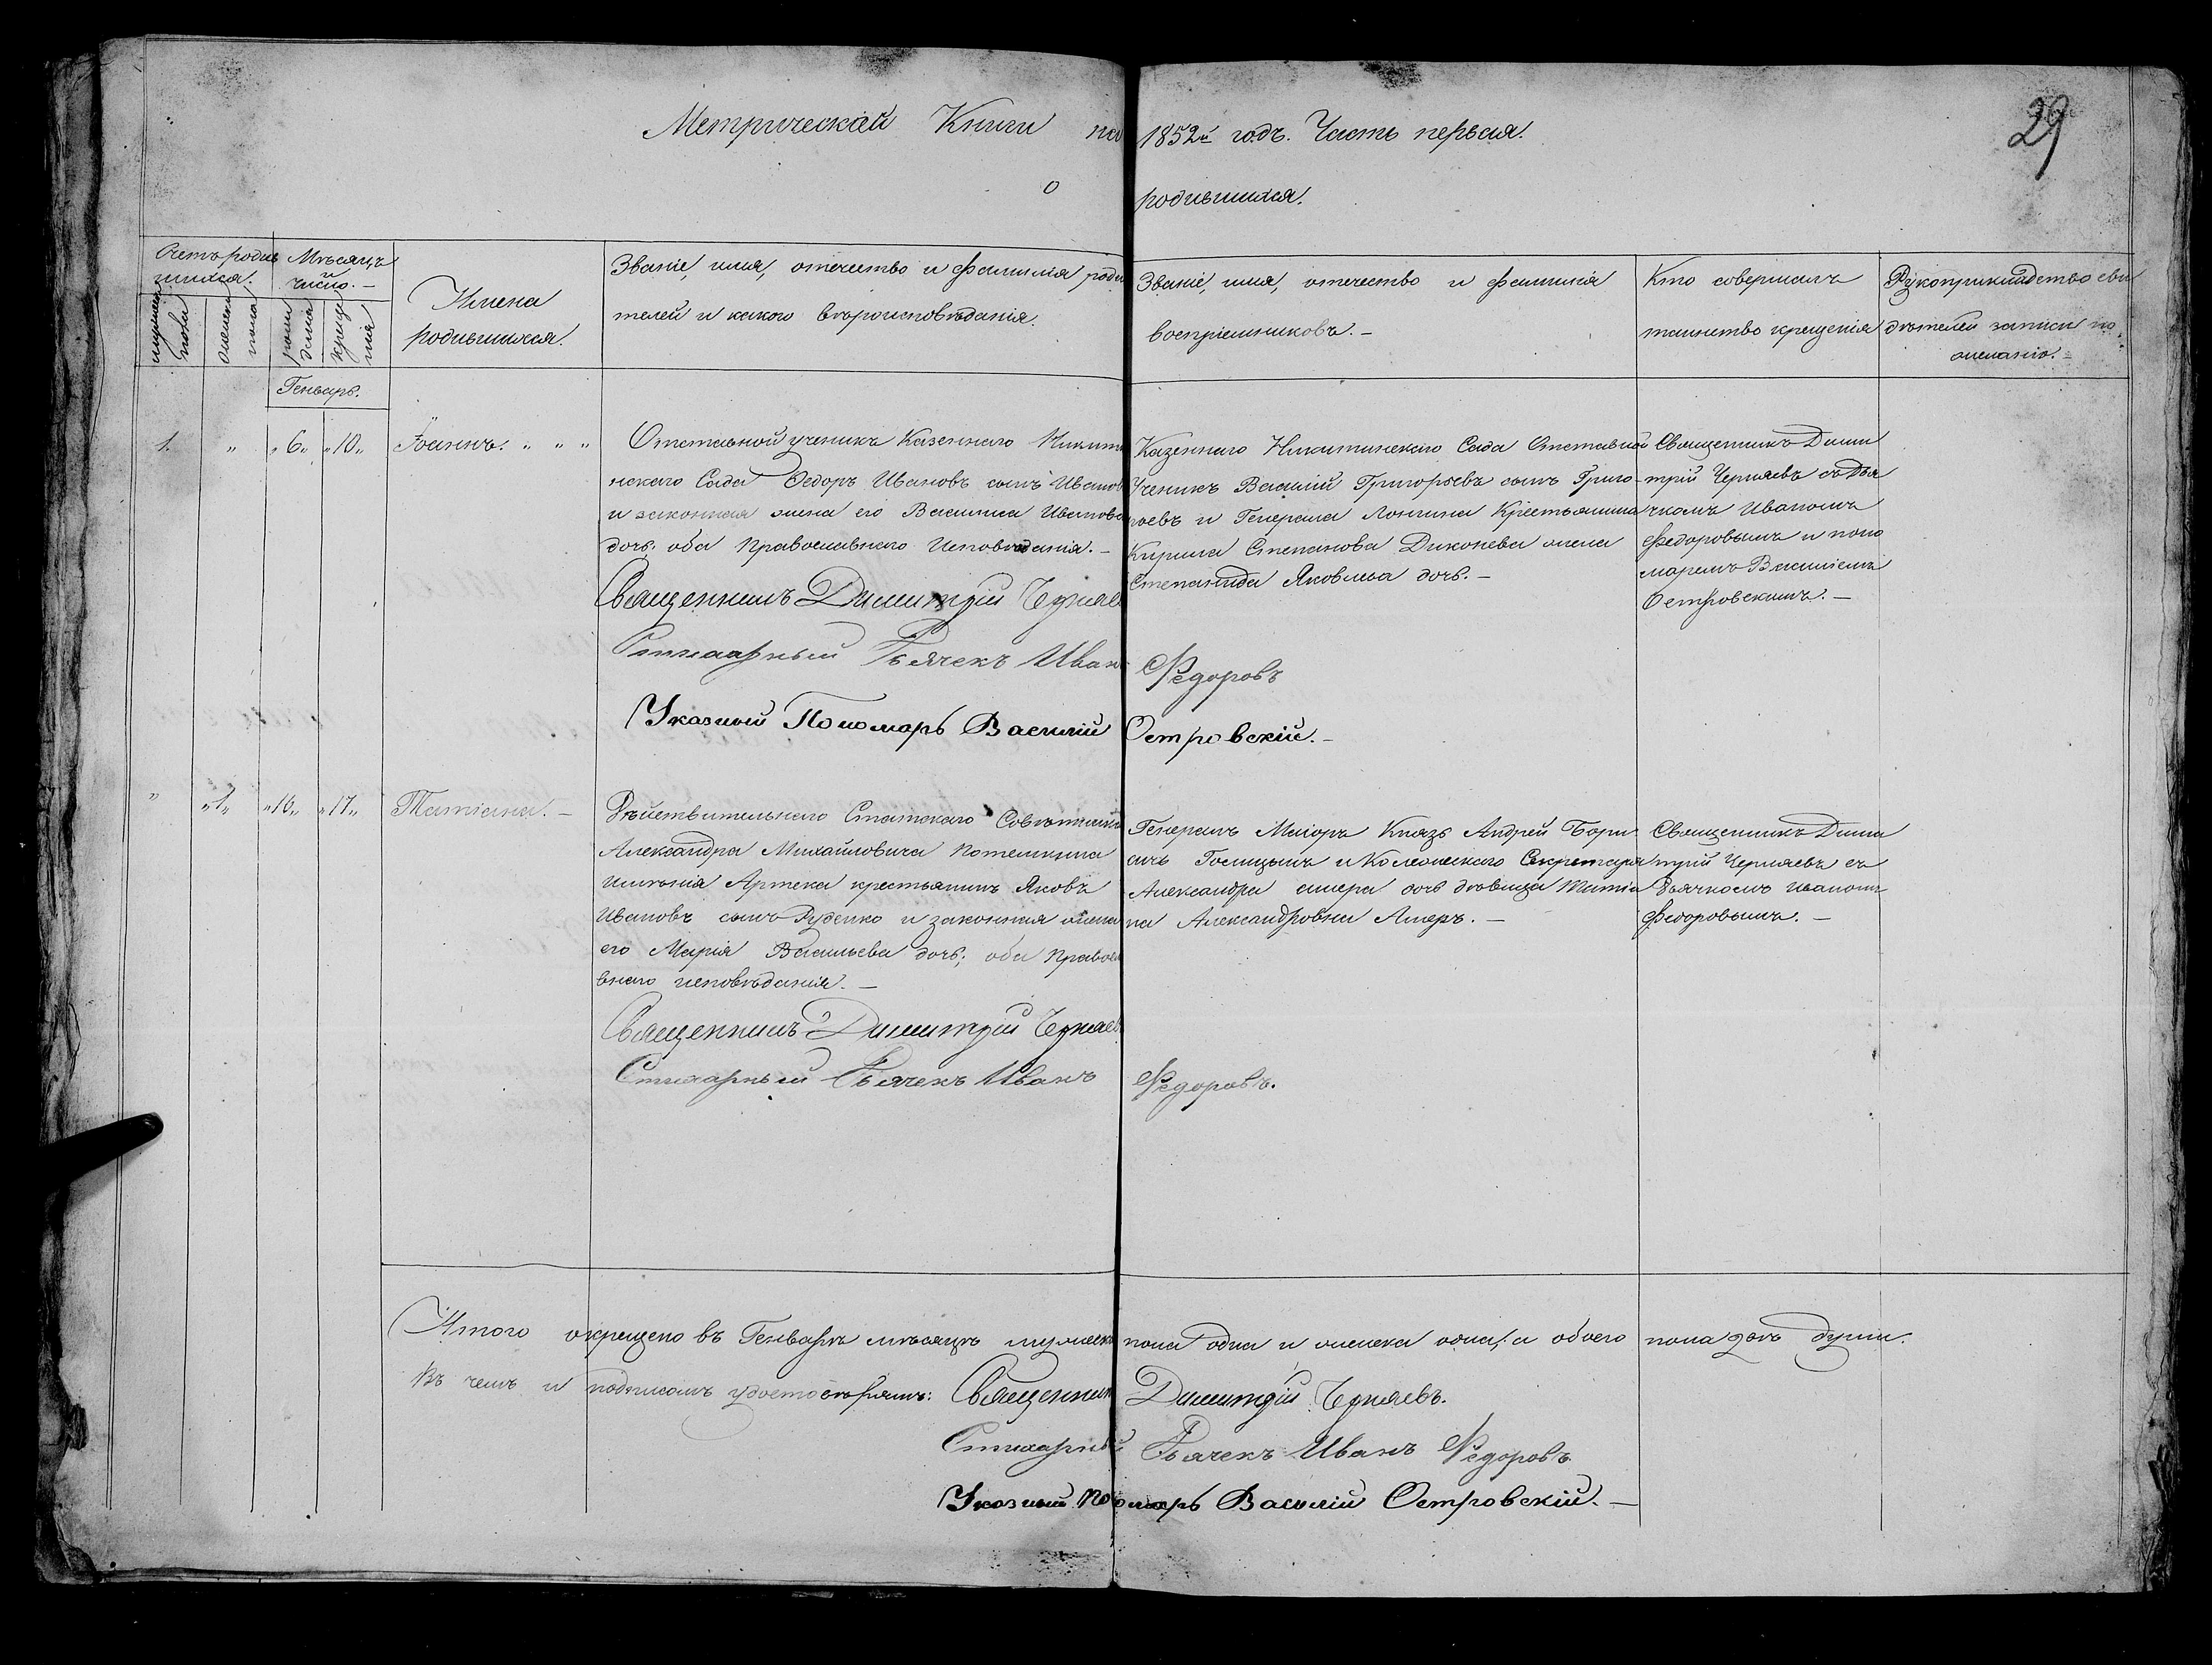 29
Метрической Книги на 1852й годъ. Часть первая.
о родившихся.
Счетъ родив
шихся.
Мѣсяцъ
и
число.
мужеска
пола
женска
пола
рож
денія
креще
нія
Имена
родившихся.
Званіе, имя, отечество и фамилія роди
телей и какого вѣроисповѣданія.
Званіе, имя, отечество и фамилія
воспріемниковъ. –
Кто совершалъ
таинство крещенія
Рукоприкладство сви
дѣтелей записи по
желанію. –
Генварь.
1. " "6" "10" Іоаннъ. " " "
Отставной ученикъ Казеннаго Никит
нскаго Сада Федоръ Ивановъ сынъ Иванов
и законная жена его Васился Иванова
дочь: оба Православнаго Исповѣданія. –
Священникъ Димитрій Черняев
Стихарный Дьячекъ Иванъ Федоровъ
Указный Пономарь Василій Островскій. –
Казеннаго Никитинскаго Сада Отставной
Ученикъ Василій Григорьевъ сынъ Григо
рьевъ и Генерала Лонгина Крестьянина
Кирила Степанова Диконева жена
Степанида Яковлева дочь. –
Священникъ Дими
трій Черняевъ съ Дья
чкомъ Иваномъ
Федоровымъ и поно
маремъ Василіемъ
Островскимъ. –
" "1" "16" "17" Татіана. –
Дѣйствительнаго Статскаго Совѣтника
Александра Михайловича Потемкина
имѣнія Артека крестьянинъ Яковъ
Ивановъ сынъ Руденко и законная жена
его Марія Васильева дочь; оба Правосл
внаго исповѣданія. –
Священникъ Димитрій Черняев
Стихарный Дьячекъ Иванъ Федоровъ.
Генералъ Маіоръ Князь Андрей Бори
сичъ Голицынъ и Колежскаго Секретаря
Александра Ампера дочь дѣвица Татіа
на Александровна Амперъ. –
Священникъ Дими
трій Черняевъ съ
Дьячкомъ Иваномъ
Федоровымъ. –
Итого окрещено въ Генварѣ мѣсяцѣ мужеска пола одна и женска одна, а обоего пола двѣ души.
Въ чемъ и подписомъ удостовѣряемъ: Священникъ Димитрій Черняевъ.
Стихарный Дьячекъ Иванъ Федоровъ
Указный Пономарь Василій Островскій. –